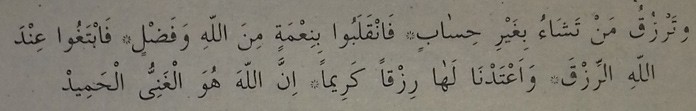 وَتَرْزُقُ مَنْ تَشَاءُ بِغَيْرِ حِسٰابٍ * فَانْقَلَبُوا بِنِعْمَةٍ مِنَ اللّٰهِ وَفَضْلٍ * فَابْتَغُوا عِنْدَ
اللّٰهِ الرِّزْقَ * وَاَعْتَدْنَا لَهٰا رِزْقاً كَرِيماً * اِنَّ اللّٰهَ هُوَ الْغَنِىُّ الْحَمِيدْ